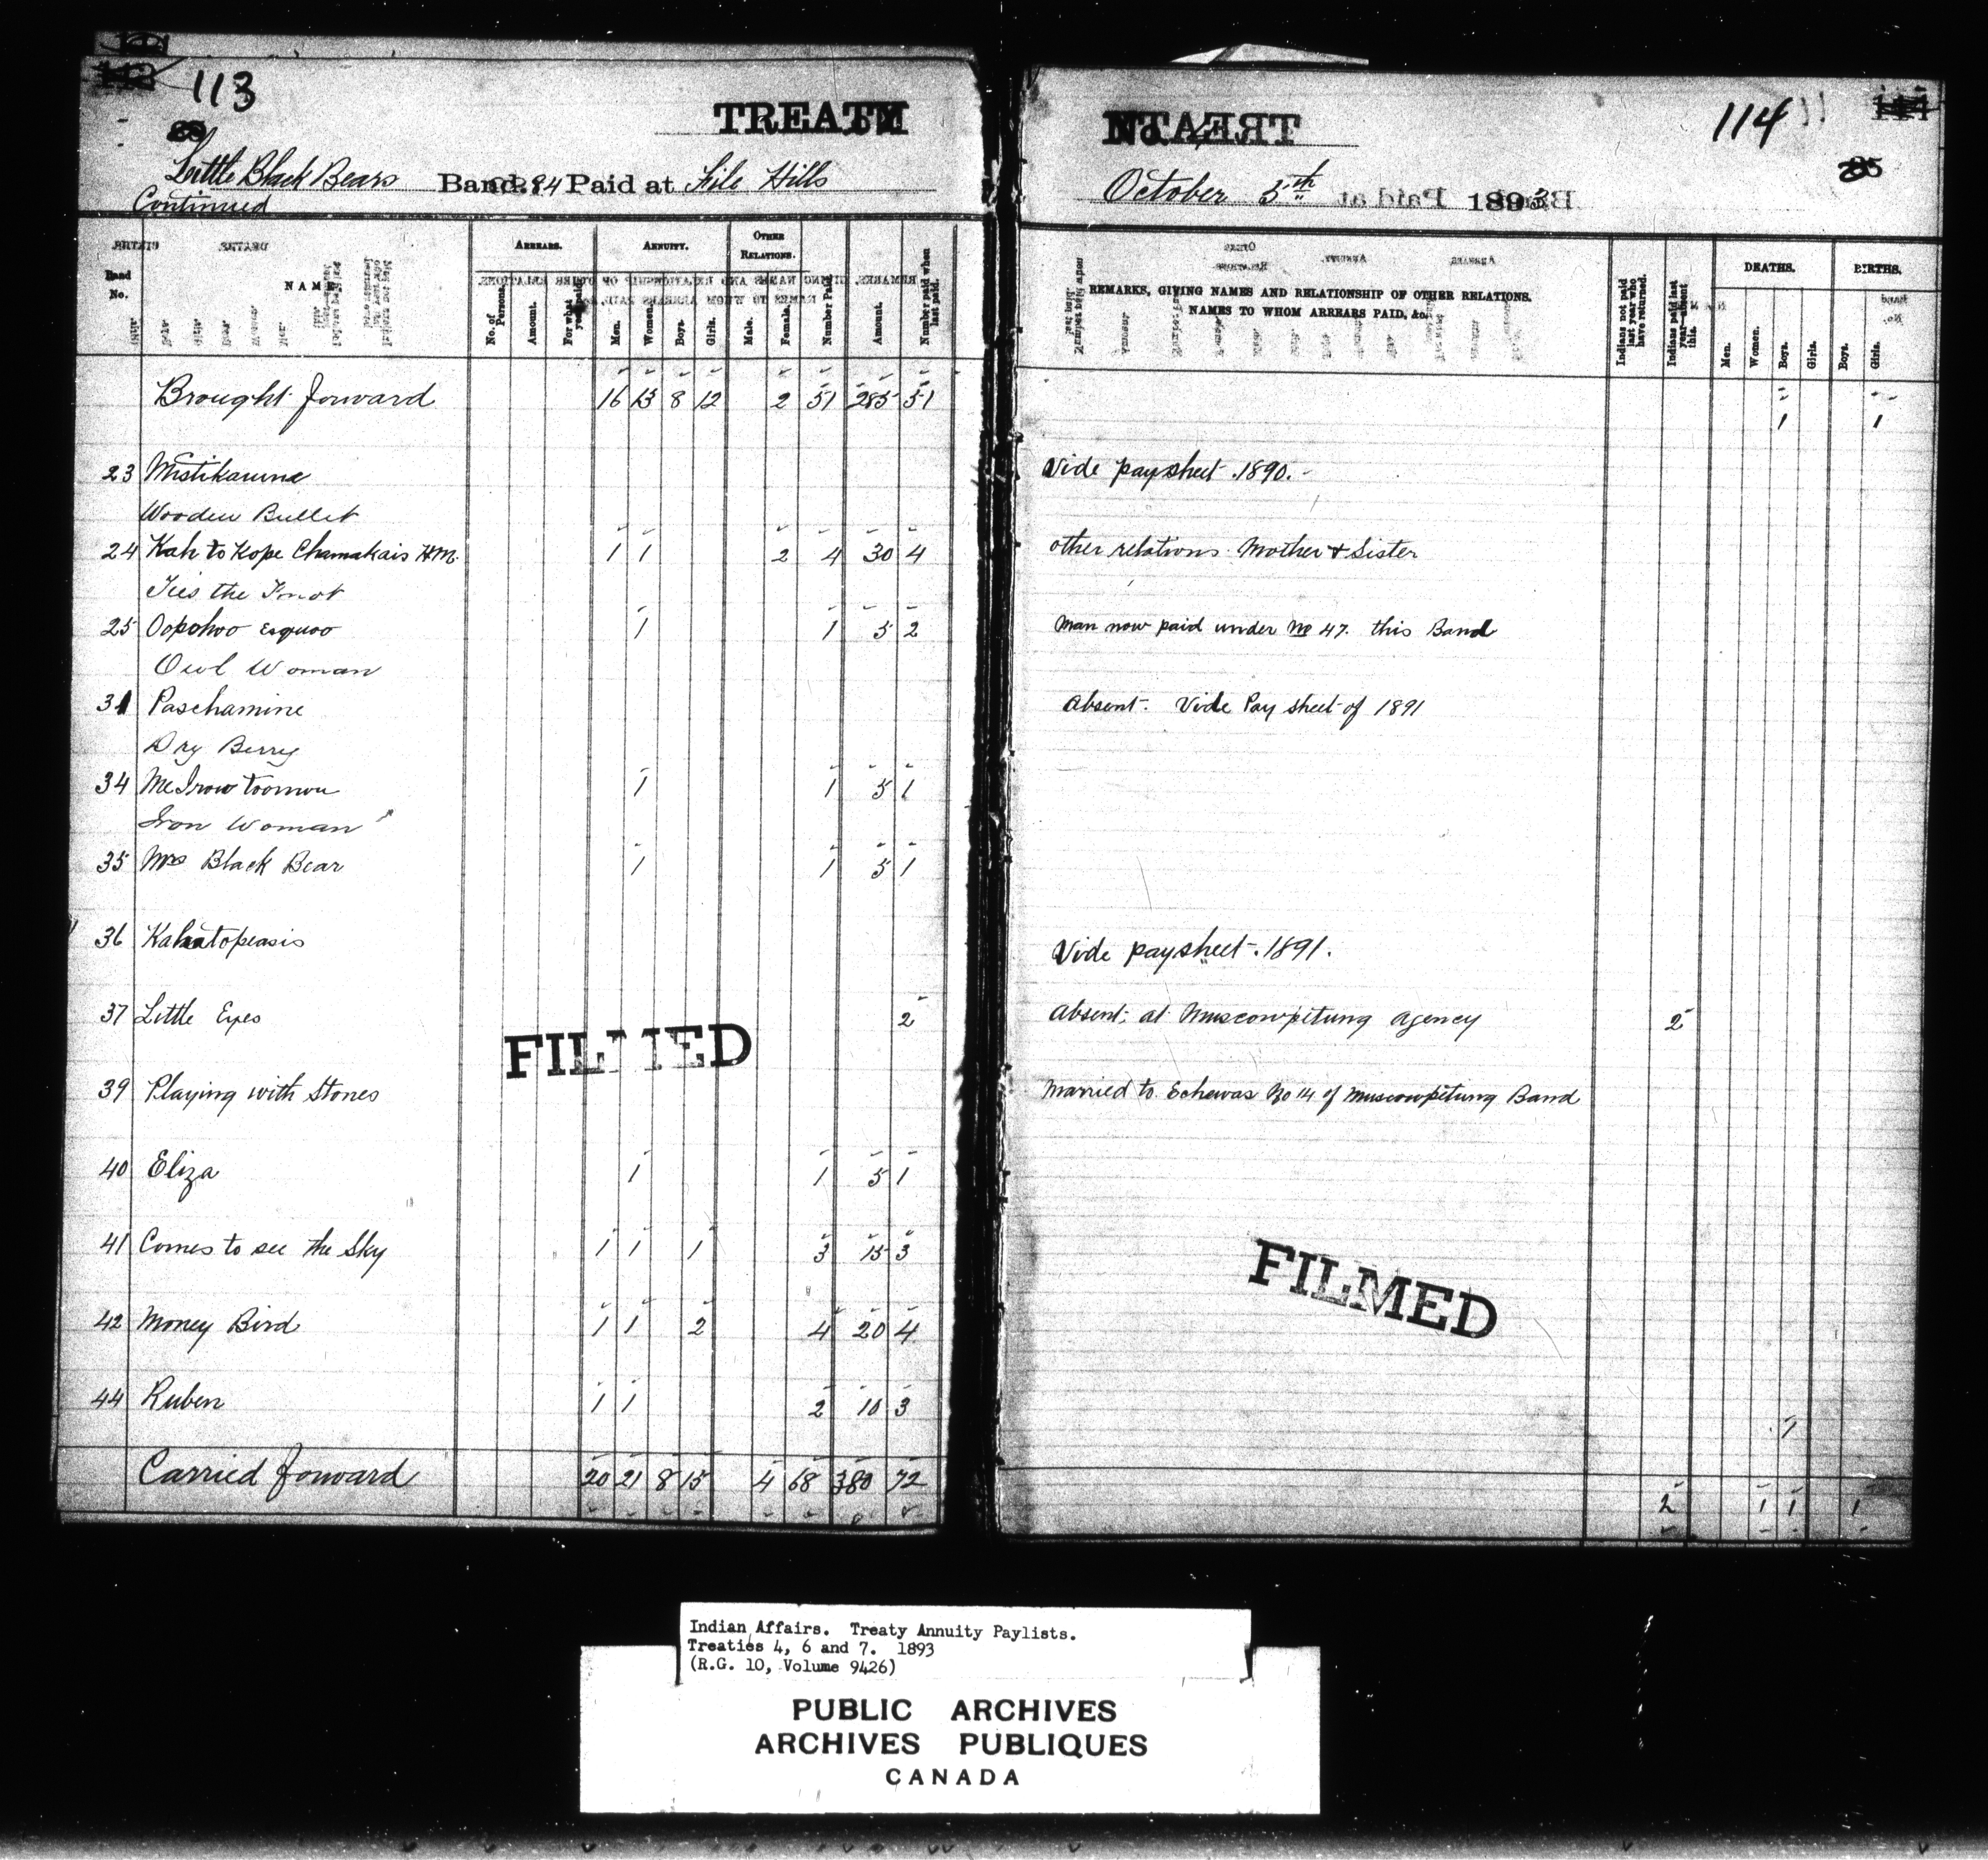 113
TREATY
Little Black Bears Band. 84 Paid at File Hills
Continued
Band No.
NAME
ARREARS.
ANNUITY.
OTHER RELATIONS.
No. of Persons.
Amount.
For what year paid.
Men.
Women.
Boys.
Girls.
Male.
Female.
Number Paid.
Amount.
Number paid when last paid.
Brought forward 16 13 8 12 2 51 285 51
23 Mistikawina
Wooden Bullet
24 Kah to Kope Chamakais H.M. 1 1 2 4 30 4
Ties the Knot
25 Oopohoo Esquoo 1 1 5 2
Owl Woman
31 Paschamine
Dry Berry
34 Me Irow toomou 1 1 5 1
Iron Woman
35 Mrs Black Bear 1 1 5 1
36 Kahatopeasis
37 Little Eyes 2
39 Playing with Stones
40 Eliza 1 1 5 1
41 Comes to see the Sky 1 1 1 3 15 3
42 Money Bird 1 1 2 4 20 4
44 Ruben 1 1 2 10 3
Carried forward 20 21 8 15 4 68 380 72
FILMED
114
No. 4
October 5th 1893
REMARKS, GIVING NAMES AND RELATIONSHIP OF OTHER RELATIONS.
NAMES TO WHOM ARREARS PAID, &c.
Indians not paid last year who have returned.
Indians paid last year—absent this.
DEATHS.
Men.
Women.
Boys.
Girls.
BIRTHS.
Boys.
Girls.
1 1
Vide paysheet .1890.
other relations Mother & Sister
Man now paid under No 47. this Band
Absent. Vide Pay sheet of 1891
Vide paysheet .1891.
Absent, at Muscowpetung Agency 2
Married to Echewas No 14 of Muscowpetung Band
FILMED
1
2 1 1 1
Indian Affairs. Treaty Annuity Paylists.
Treaties 4, 6 and 7. 1893
(R.G. 10, Volume 9426)
PUBLIC ARCHIVES
ARCHIVES PUBLIQUES
CANADA